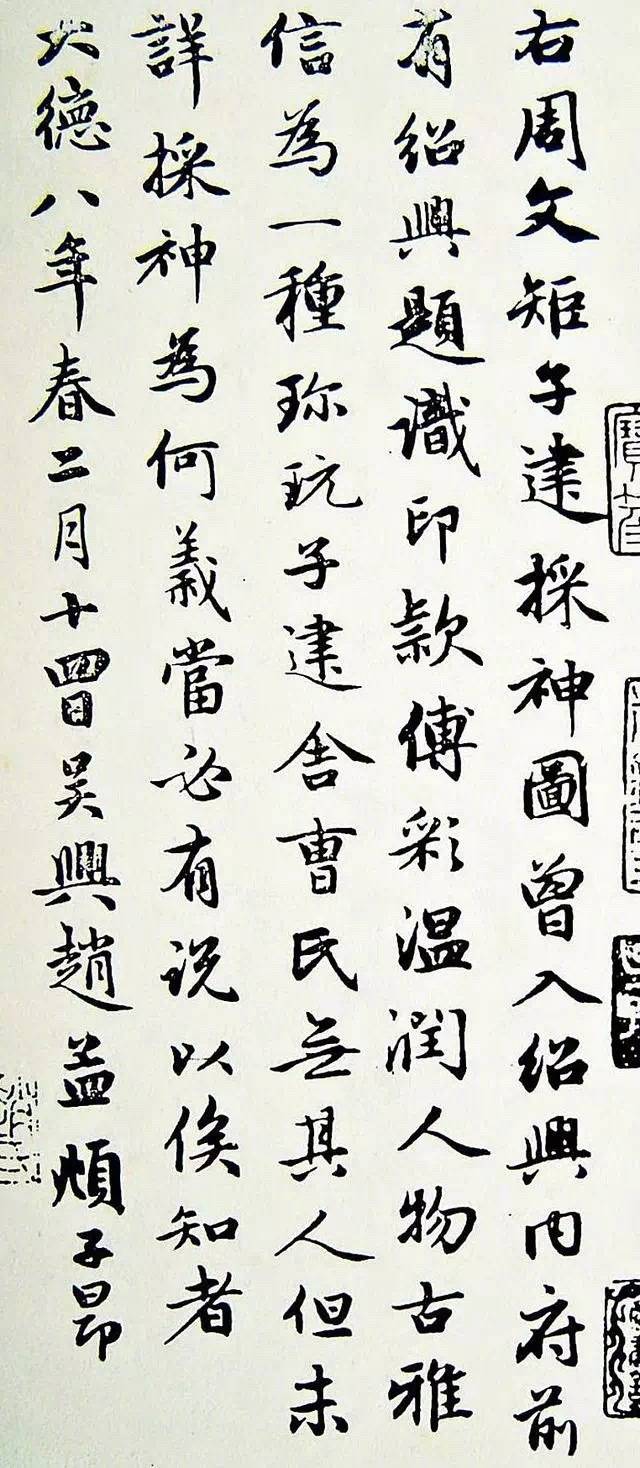 右周文矩子建採神圖曾入紹興内府前
有紹興題識印款傅彩温潤人物古雅
信為一種珎玩子建舍曹氏無其人但未
詳採神為何義當必有説以俟知者
大德八年春二月十四日吴興趙孟頫子昂